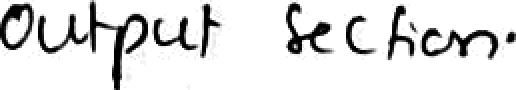 Output Section.